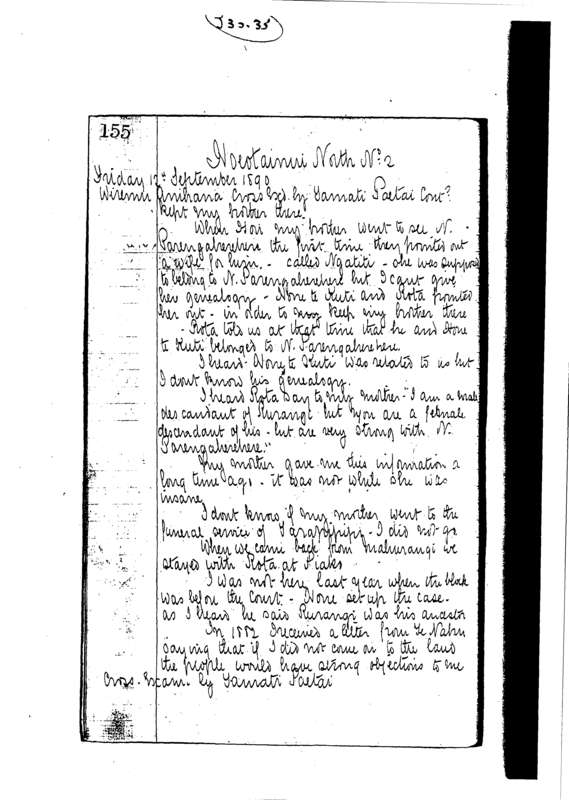 J 30.35
155
Hoeotainui North No 2
Friday 12th September 1890
Wiremu Anihana Cross Exd. by Tamati Paetai Cont?
kept my brother there.
When Hori my brother went to see N.
Parengaherehere the first time they pointed out
a wife for him. - called Ngatiti - she was supposed
to belong to N. Parengaherehere but I cant give
her genealogy - Hone te Kuti and Rota pointed
her out - in order to keep my brother there
- Rota told us at that time that he and Hone
te Kuti belonged to N. Parengaherehere.
I heard Hone te Kuti was related to us but
I dont know his genealogy.
I heard Rota say to my mother - "I am a male
descendant of Rurangi but you are a female
descendant of his - but are very strong with N.
Parengaherehere."
My mother gave me this information a
long time ago - it was not while she was
insane
I dont know if my mother went to the
funeral service of - I did not go
When we came back from Mahurangi we
stayed with Rota at Piako
I was not here last year when the block
was before the Court - Hone set up the case.
as I heard he said Rurangi was his ancestor
In 1882 I received a letter from Te Nahu
saying that if I did not come on to the land
the people would have strong objections to me
Cross-Exam. by Tamati Paetai